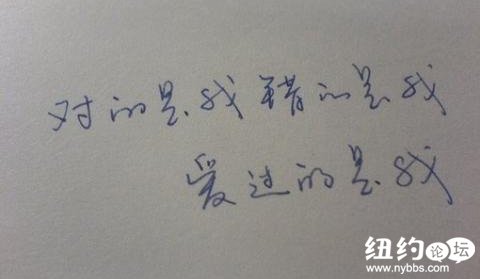 对的是我错的是我
爱过的是我
纽约论坛
www.nybbs.com